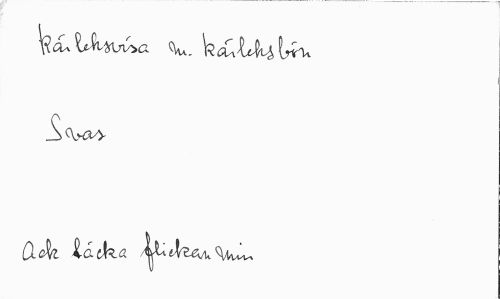 Kärleksvisa m. kärleksbön
Svar
Ack täcka flickan min